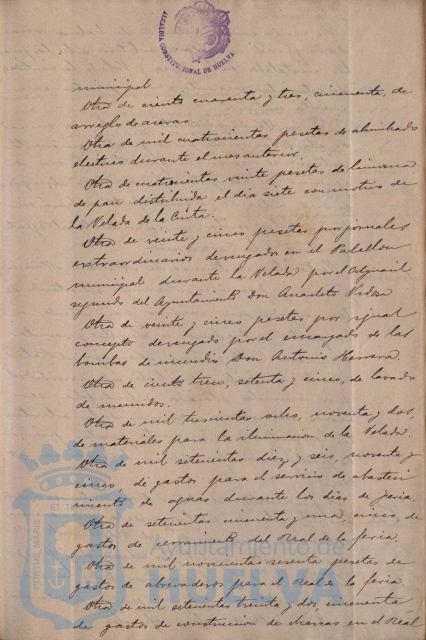 ALCALDIA CONSTITUCIONAL DE HUELVA
municipal
Otra de ciento cuarenta y tres, cincuenta, de
arreglo de aceras.
Otra de mil cuatrocientas pesetas de alumbrado
electrico durante el mes anterior.
Otra de cuatrocientas veinte pesetas de limosna
de pan distribuida el dia siete con motivo de
la Velada de la Cinta.
Otra de veinte y cinco pesetas por jornales
extraordinarios devengados en el Pabellon
municipal durante la Velada por el Alguacil
segundo del Ayuntamiento Don Anacleto
Otra de veinte y cinco pesetas por igual
concepto devengado por el encargado de las
bombas de incendio Don Antonio Herrera.
Otra de ciento trece, setenta y cinco, de lavado
de
Otra de mil trescientas ocho, noventa y dos,
de materiales para la iluminacion de la Velada.
Otra de mil setecientas diez y seis, noventa y
cinco de gastos para el servicio de abasteci
miento de aguas durante los dias de feria.
Otra de setecientas cincuenta y una, cinco, de
gastos de cerramiento del Real de la feria.
Otra de mil novecientas sesenta pesetas de
gastos de abrevaderos para el Real de la feria.
Otra de mil setecientas treinta y dos, cincuenta
de gastos de construccion de en el Real
Ayuntamiento de
HUELVA